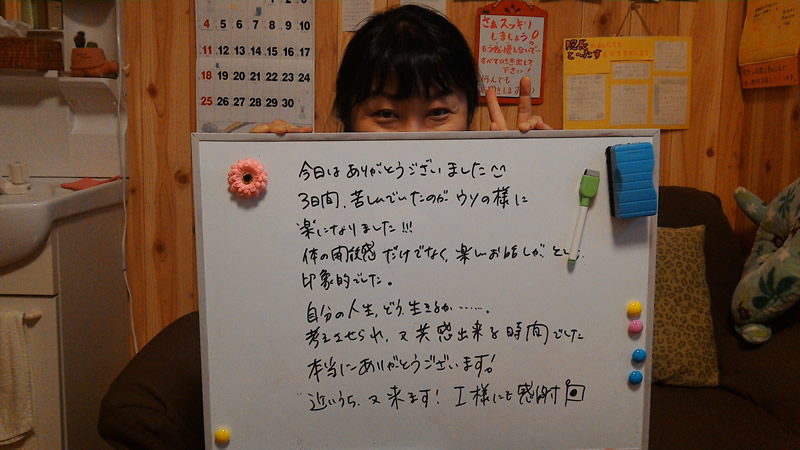 4 5 6 7 8 9 10
11 12 13 14 15 16 17
18 19 20 21 22 23 24
25 26 27 28 29 30
さぁスッキリ
しましょう!
もう我慢しないで…
すべて吐き出して
下さい!
何んでも
院長
ど〜たす
今日はありがとうございました
3日間、苦しんでいたのがウソの様に
楽になりました!!!
体の開放感だけでなく、楽しいお話しが、とても
印象的でした。
自分の人生、どう生きるか……。
考えさせられ、又共感出来る時間でした
本当にありがとうございます!
近いうち、又来ます! I様にも感謝